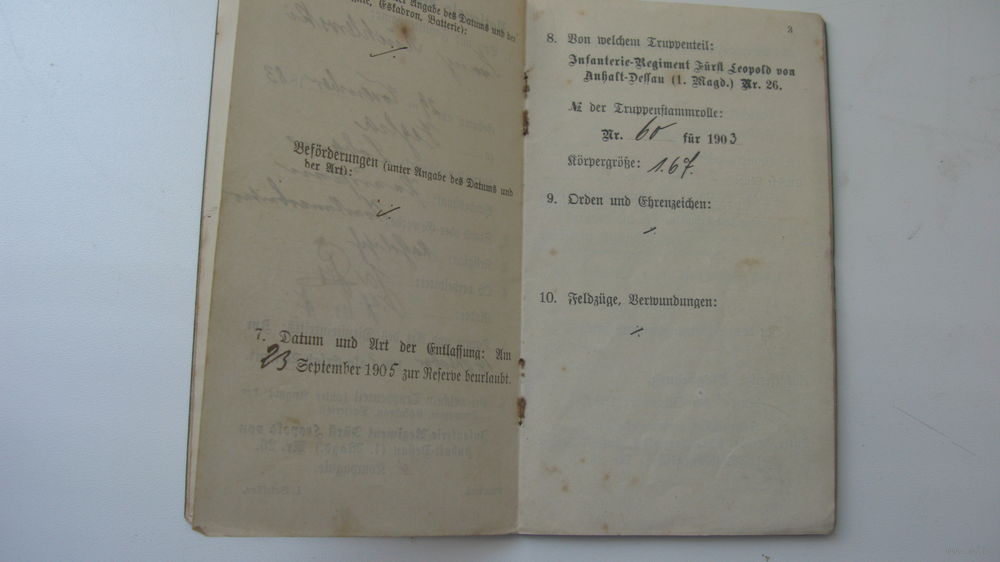 er Angabe des Datums und der
nie, Eskadron, Batterie):
./.
Beförderungen (unter Angabe des Datums und
der Art):
./.
7. Datum und Art der Entlassung: Am
23 September 1905 zur Reserve beurlaubt.
3
8. Von welchem Truppenteil:
Infanterie-Regiment Fürst Leopold von
Anhalt-Dessau (1. Magd.) Nr. 26.
№ der Truppenstammrolle:
Nr. 60 für 1903
Körpergröße: 1.67.
9. Orden und Ehrenzeichen:
./.
10. Feldzüge, Verwundungen:
./.